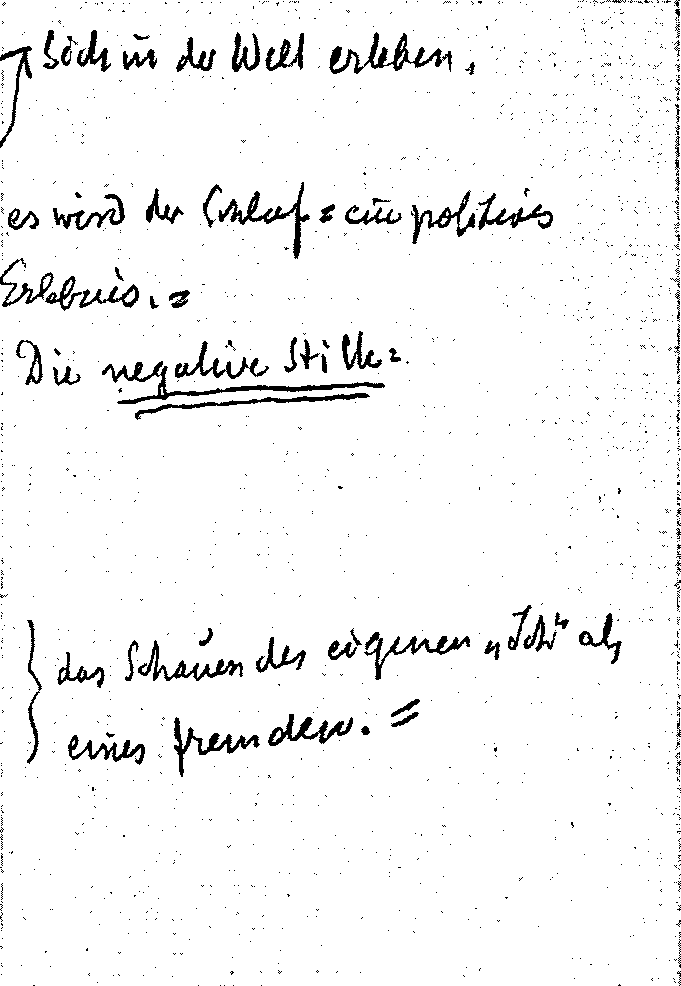 Sich in der Welt erleben.
es wird der Schlaf = ein positives
Erlebnis. =
Die negative Stille =
das Schauen des eigenen „Ich“ als
eines fremden. =